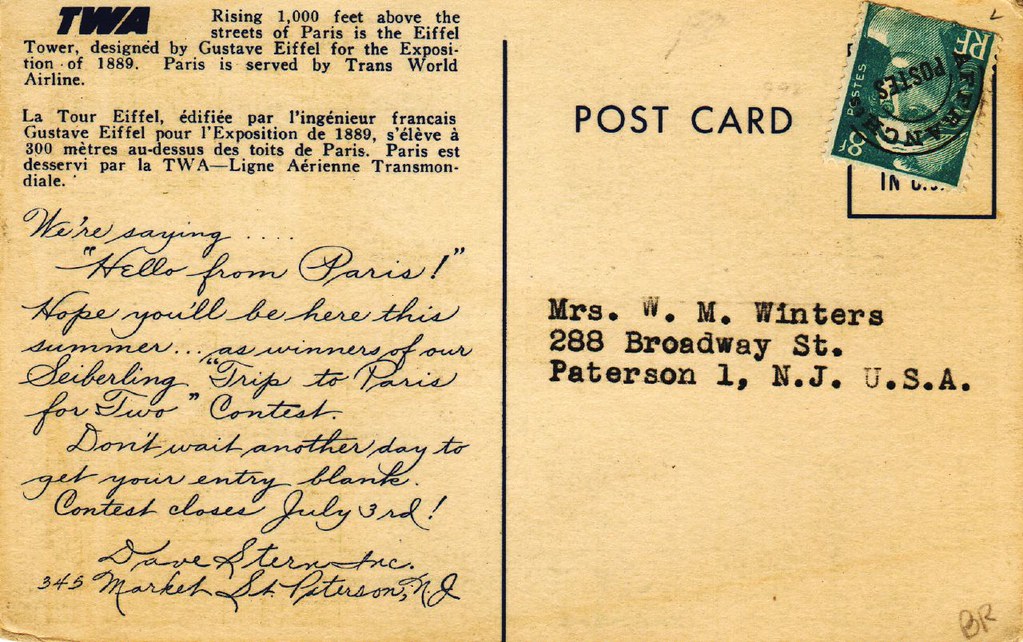 TWA
Rising 1,000 feet above the
streets of Paris is the Eiffel
Tower, designed by Gustave Eiffel for the Exposi-
tion of 1889. Paris is served by Trans World
Airline.
La Tour Eiffel, édifiée par l'ingénieur francais
Gustave Eiffel pour l'Exposition de 1889, s'élève à
300 mètres au-dessus des toits de Paris. Paris est
desservi par la TWA—Ligne Aérienne Transmon-
diale.
We're saying ....
"Hello from Paris!"
Hope you'll be here this
summer... as winners of our
Seiberling "Trip to Paris
for Two" Contest.
Don't wait another day to
get your entry blank.
Contest closes July 3rd!
Dave Stern Inc.
345 Market St. Paterson, N.J
POST CARD
RF
POSTES
8f
AFFRANCHts
POSTES
IN U.S.
Mrs. W. M. Winters
288 Broadway St.
Paterson 1, N.J. U.S.A.
BR